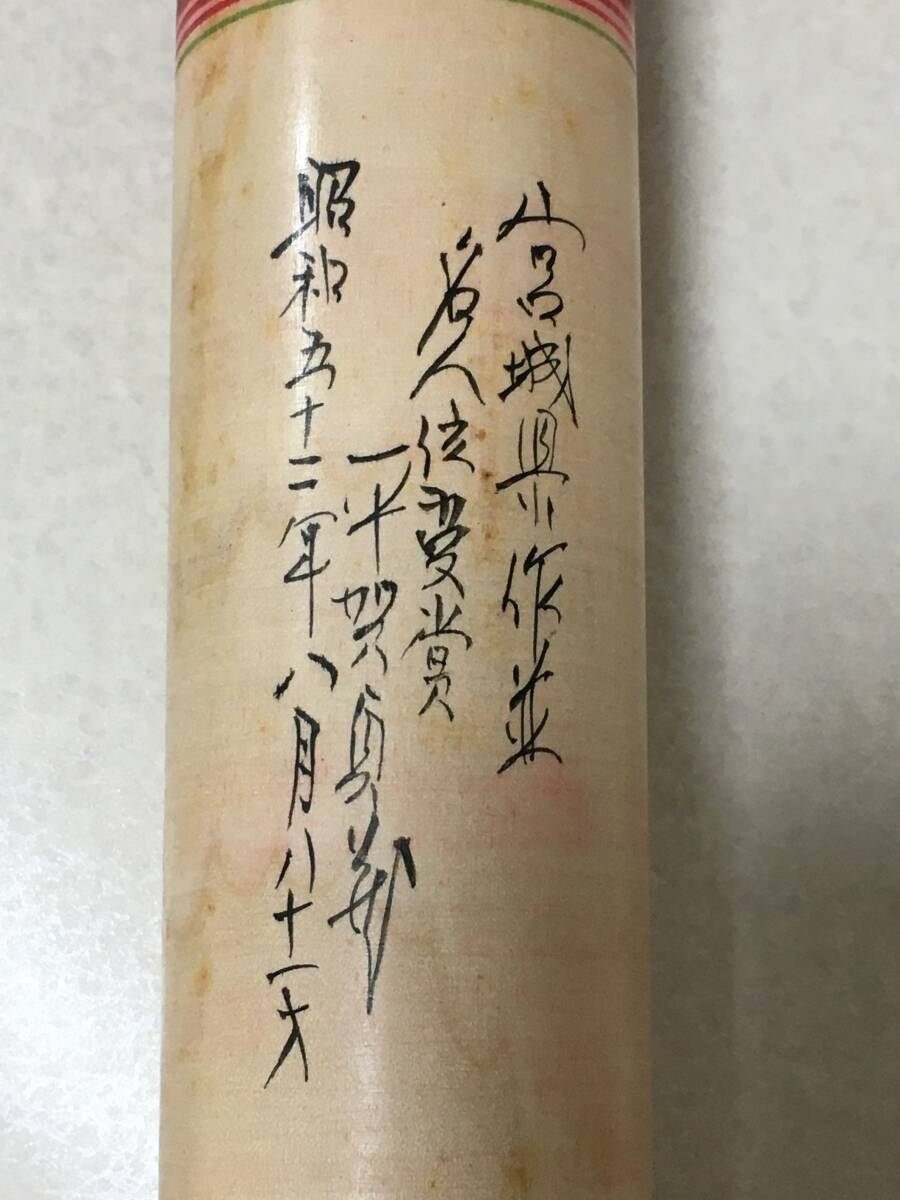 宮城県作並
名人位受賞
平賀貞蔵
昭和五十二年八月八十一才